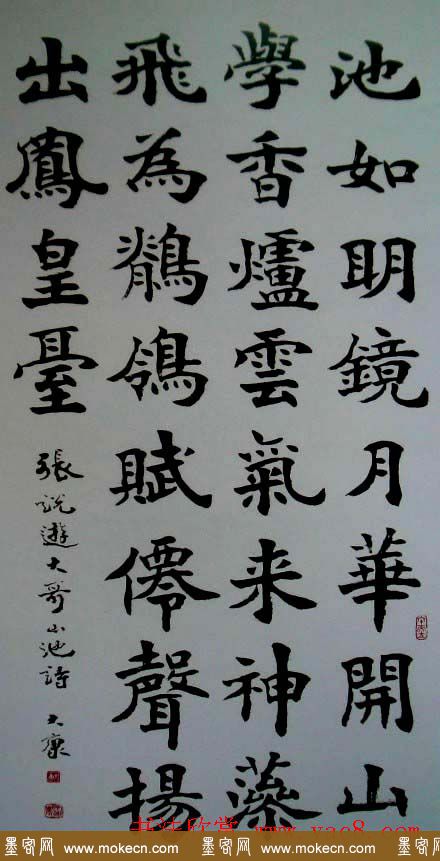 池如明鏡月華開山
學香爐雲氣来神藻
飛為鶺鴒賦僊聲揚
出鳳皇臺
張說遊大哥山池詩 大康
书法欣赏 www.yac8.com
墨客网 www.mokecn.com 墨客网 www.mokecn.com 墨客网